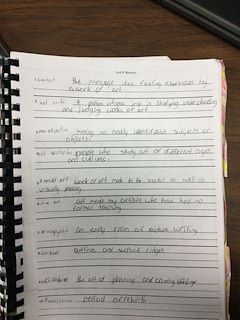 content the message idea feeling expressed by
a work of art
art critic A person whose job is studying understanding
and judging works of art
having no readily identifiable subjects or
objects
people who study art of different ages
and cultures
work of art made to be useful as well as
visually pleasing
art made by artists who have had no
formal training
an early from of picture writing
contour outlines and surface ridges
architecture the art of planning and creating buildings
period of rebirth